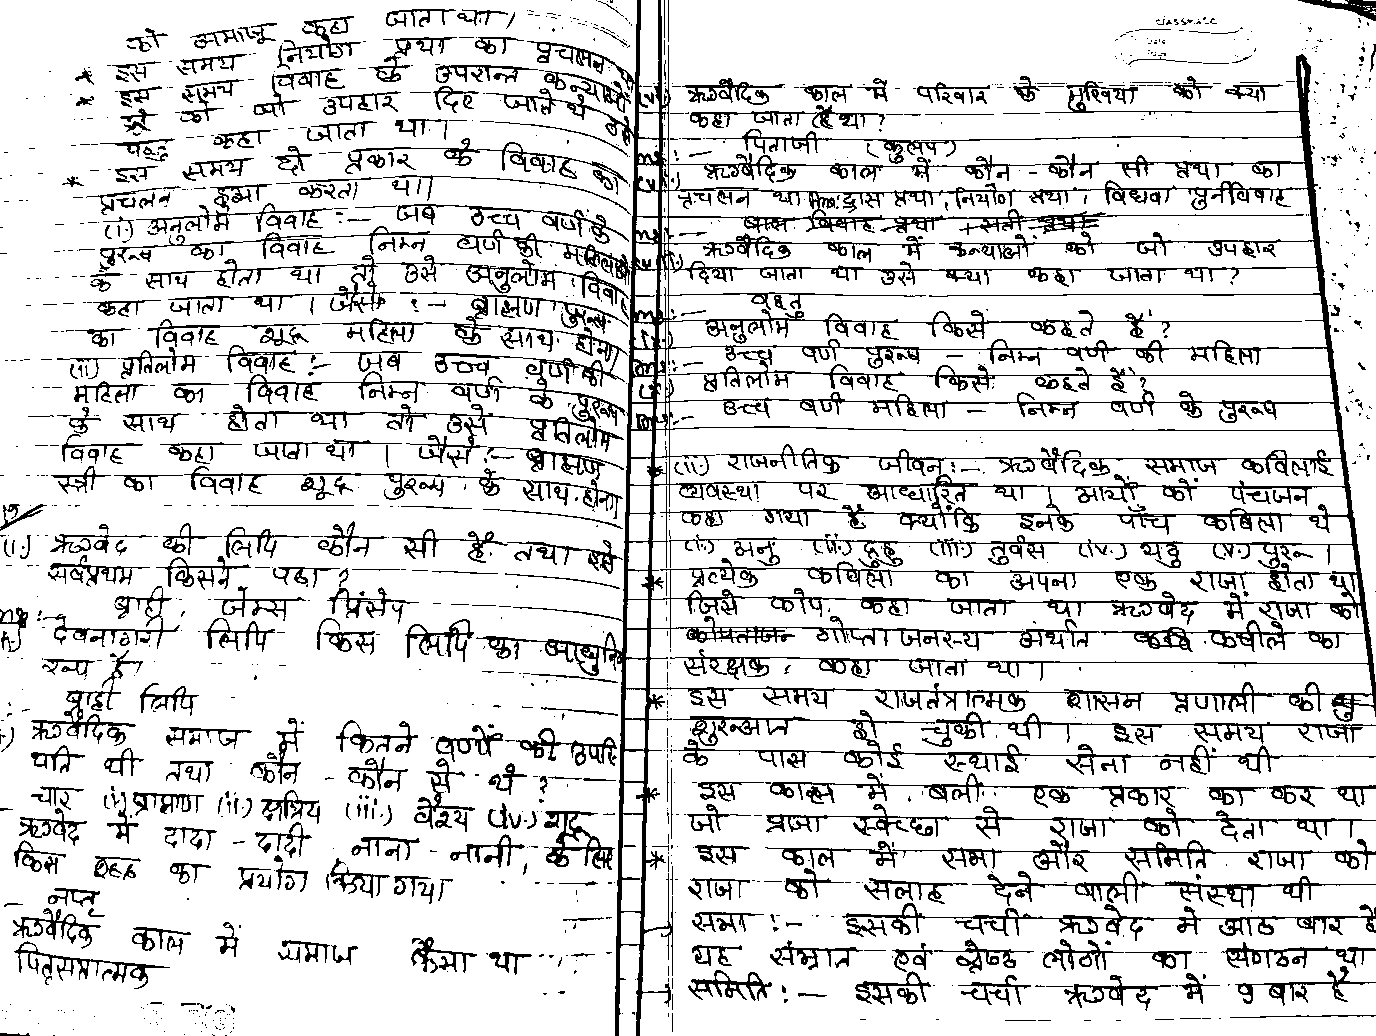 को समाज कहा जाता था।
* इस समय नियोग प्रथा का प्रचलन था
* इस समय विवाह के उपरान्त कन्याओं
को जो उपहार दिए जाते थे उसे
वहतु कहा जाता था।
* इस समय दो प्रकार के विवाह का
प्रचलन हुआ करता था।
(i) अनुलोम विवाह :- जब उच्च वर्ण के
पुरूष का विवाह निम्न वर्ण की महिलाओं
के साथ होता था तो उसे अनुलोम विवाह
कहा जाता था। जैसे :- ब्राह्मण पुरूष
का विवाह शूद्र महिला के साथ होना
(ii) प्रतिलोम विवाह :- जब उच्च वर्ण की
महिला का विवाह निम्न वर्ण के पुरूष
के साथ होता था तो उसे प्रतिलोम
विवाह कहा जाता था। जैसे :- ब्राह्मण
स्त्री का विवाह शूद्र पुरूष के साथ होना
(i.) ऋग्वेद की लिपि कौन सी है तथा इसे
सर्वप्रथम किसने पढा ?
ब्राह्मी, जेम्स प्रिंसेप
देवनागरी लिपि किस लिपि का आधुनिक
रूप है।
ब्राह्मी लिपि
ऋग्वैदिक समाज में कितने वर्णों की उपस्थि
थति थी तथा कौन - कौन से थे ?
चार (i.) ब्राह्मण (ii.) क्षत्रिय (iii.) वैश्य (iv.) शूद्र
ऋग्वेद में दादा - दादी नाना - नानी, के लिए
किस शब्द का प्रयोग किया गया
- नप्तृ
ऋग्वैदिक काल में समाज कैसा था
पितृसत्तात्मक
classmate
Date
Page
(vi) ऋग्वैदिक काल में परिवार के मुखिया को क्या
कहा जाता है था?
Ans:- पिताजी (कुलप)
(vii) ऋग्वैदिक काल में कौन - कौन सी प्रथा का
प्रचलन था Ans: दास प्रथा, नियोग प्रथा, विधवा पुर्नविवाह
Ans:- बाल विवाह प्रथा, सती प्रथा
(viii) ऋग्वैदिक काल में कन्याओं को जो उपहार
दिया जाता था उसे क्या कहा जाता था?
Ans:- वहतु
अनुलोम विवाह किसे कहते हैं?
Ans:- उच्च वर्ण पुरूष - निम्न वर्ण की महिला
(x) प्रतिलोम विवाह किसे कहते हैं?
Ans:- उच्च वर्ण महिला - निम्न वर्ण के पुरूष
* (ii) राजनीतिक जीवन :- ऋग्वैदिक समाज कबिलाई
व्यवस्था पर आधारित था। आर्यों को पंचजन
कहा गया है क्योंकि इनके पाँच कबिला थे
(i.) अनु (ii.) द्रुहु (iii.) तुर्वस (iv.) यदु (v.) पुरू।
* प्रत्येक कबिला का अपना एक राजा होता था
जिसे कोप कहा जाता था ऋग्वेद में राजा को
गोप्ता जनस्य अर्थात कबीले का
संरक्षक कहा जाता था।
* इस समय राजतंत्रात्मक शासन प्रणाली की
शुरूआत हो चुकी थी। इस समय राजा
के पास कोई स्थाई सेना नहीं थी
* इस काल में बली एक प्रकार का कर था
जो प्रजा स्वेच्छा से राजा को देता था।
* इस काल में सभा और समिति राजा को
राजा को सलाह देने वाली संस्था थी
सभा :- इसकी चर्चा ऋग्वेद में आठ बार है
यह संभ्रात एवं श्रेष्ठ लोगों का संगठन था
समिति :- इसकी चर्चा ऋग्वेद में 9 बार है